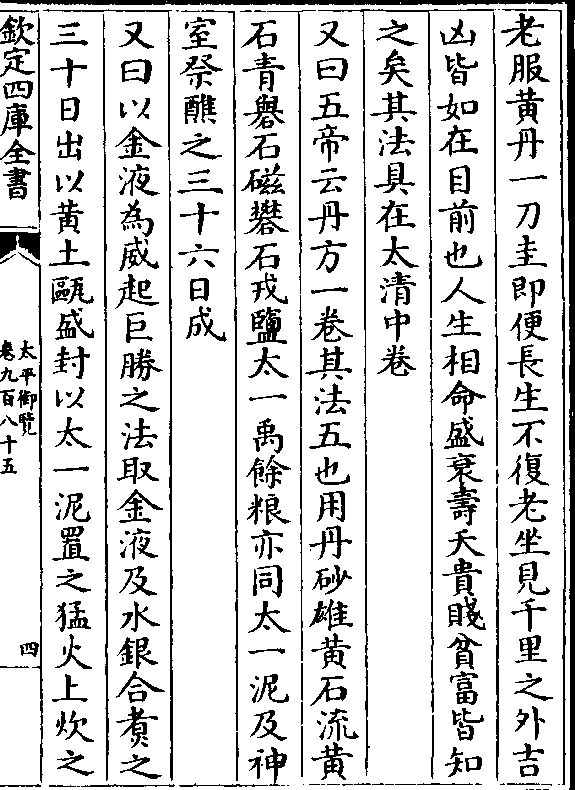 老服黄丹一刀圭即便長生不復老坐見千里之外吉
凶皆如在目前也人生相命盛衰壽夭貴賤貧富皆知
之矣其法具在太清中卷
又曰五帝云丹方一卷其法五也用丹砂雄黄石流黄
石青礜石磁礬石戎鹽太一禹餘粮亦同太一泥及神
室祭醮之三十六日成
又曰以金液為威起巨勝之法取金液及水銀合煑之
三十日出以黄土甌盛封以太一泥置之猛火上炊之
欽定四庫全書
太平御覽
卷九百八十五
四